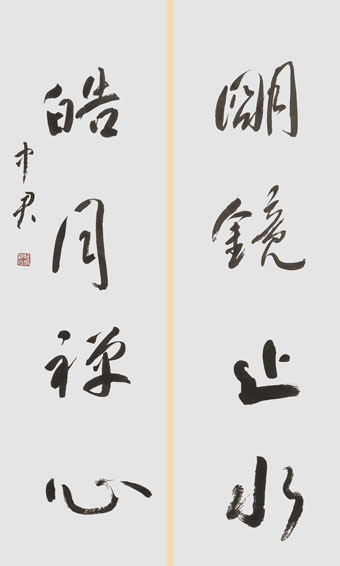 明鏡止水
皓月禅心
中君